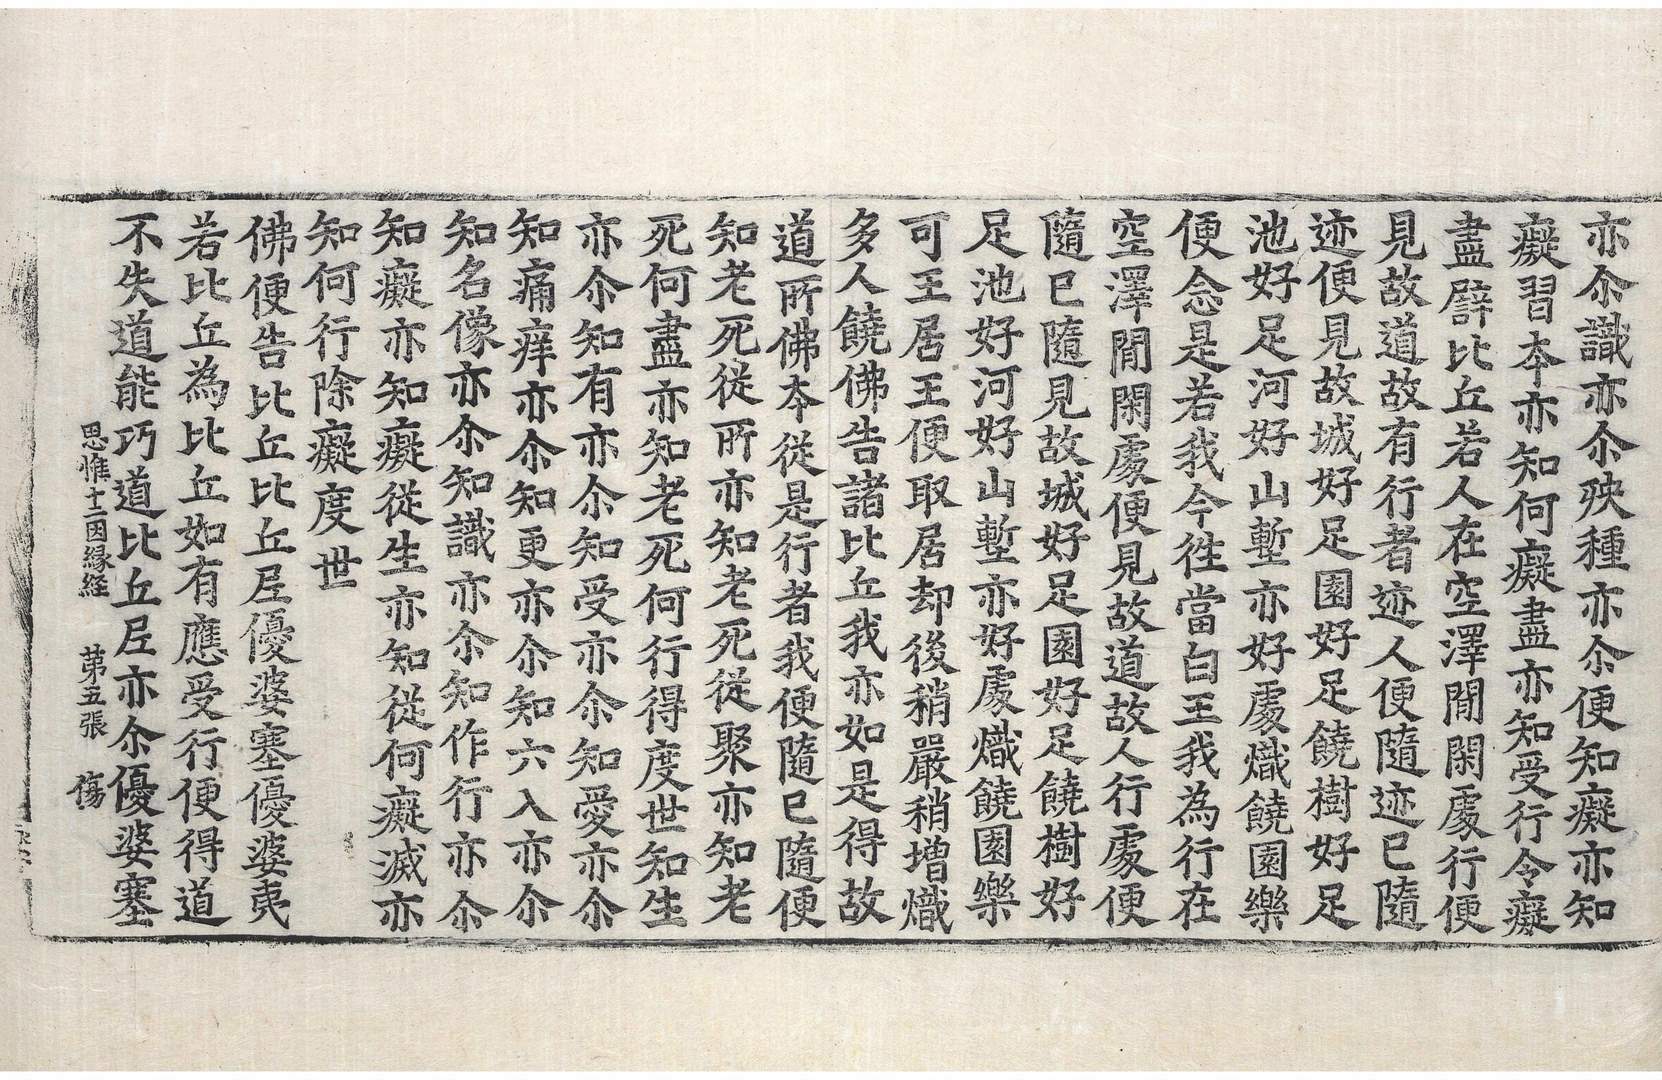 亦尒識亦尒殃種亦尒便知癡亦知
癡習夲亦知何癡盡亦知受行令癡
盡譬比丘若人在空澤閒閑處行便
見故道故有行者迹人便隨迹已隨
迹便見故城好足園好足饒樹好足
池好足河好山壍亦好處熾饒園樂
便念是若我今徃當白王我為行在
空澤閒閑處便見故道故人行處便
隨已隨見故城好足園好足饒樹好
足池好河好山壍亦好處熾饒園樂
可王居王便取居却後稍嚴稍增熾
多人饒佛告諸比丘我亦如是得故
道所佛夲從是行者我便隨已隨便
知老死從所亦知老死從聚亦知老
死何盡亦知老死何行得度世知生
亦尒知有亦尒知受亦尒知愛亦尒
知痛痒亦尒知更亦尒知六入亦尒
知名像亦尒知識亦尒知作行亦尒
知癡亦知癡從生亦知從何癡滅亦
知何行除癡度世
佛便告比丘比丘尼優婆塞優婆夷
若比丘為比丘如有應受行便得道
不失道能巧道比丘尼亦尒優婆塞
思惟十二因緣経　第五張　傷